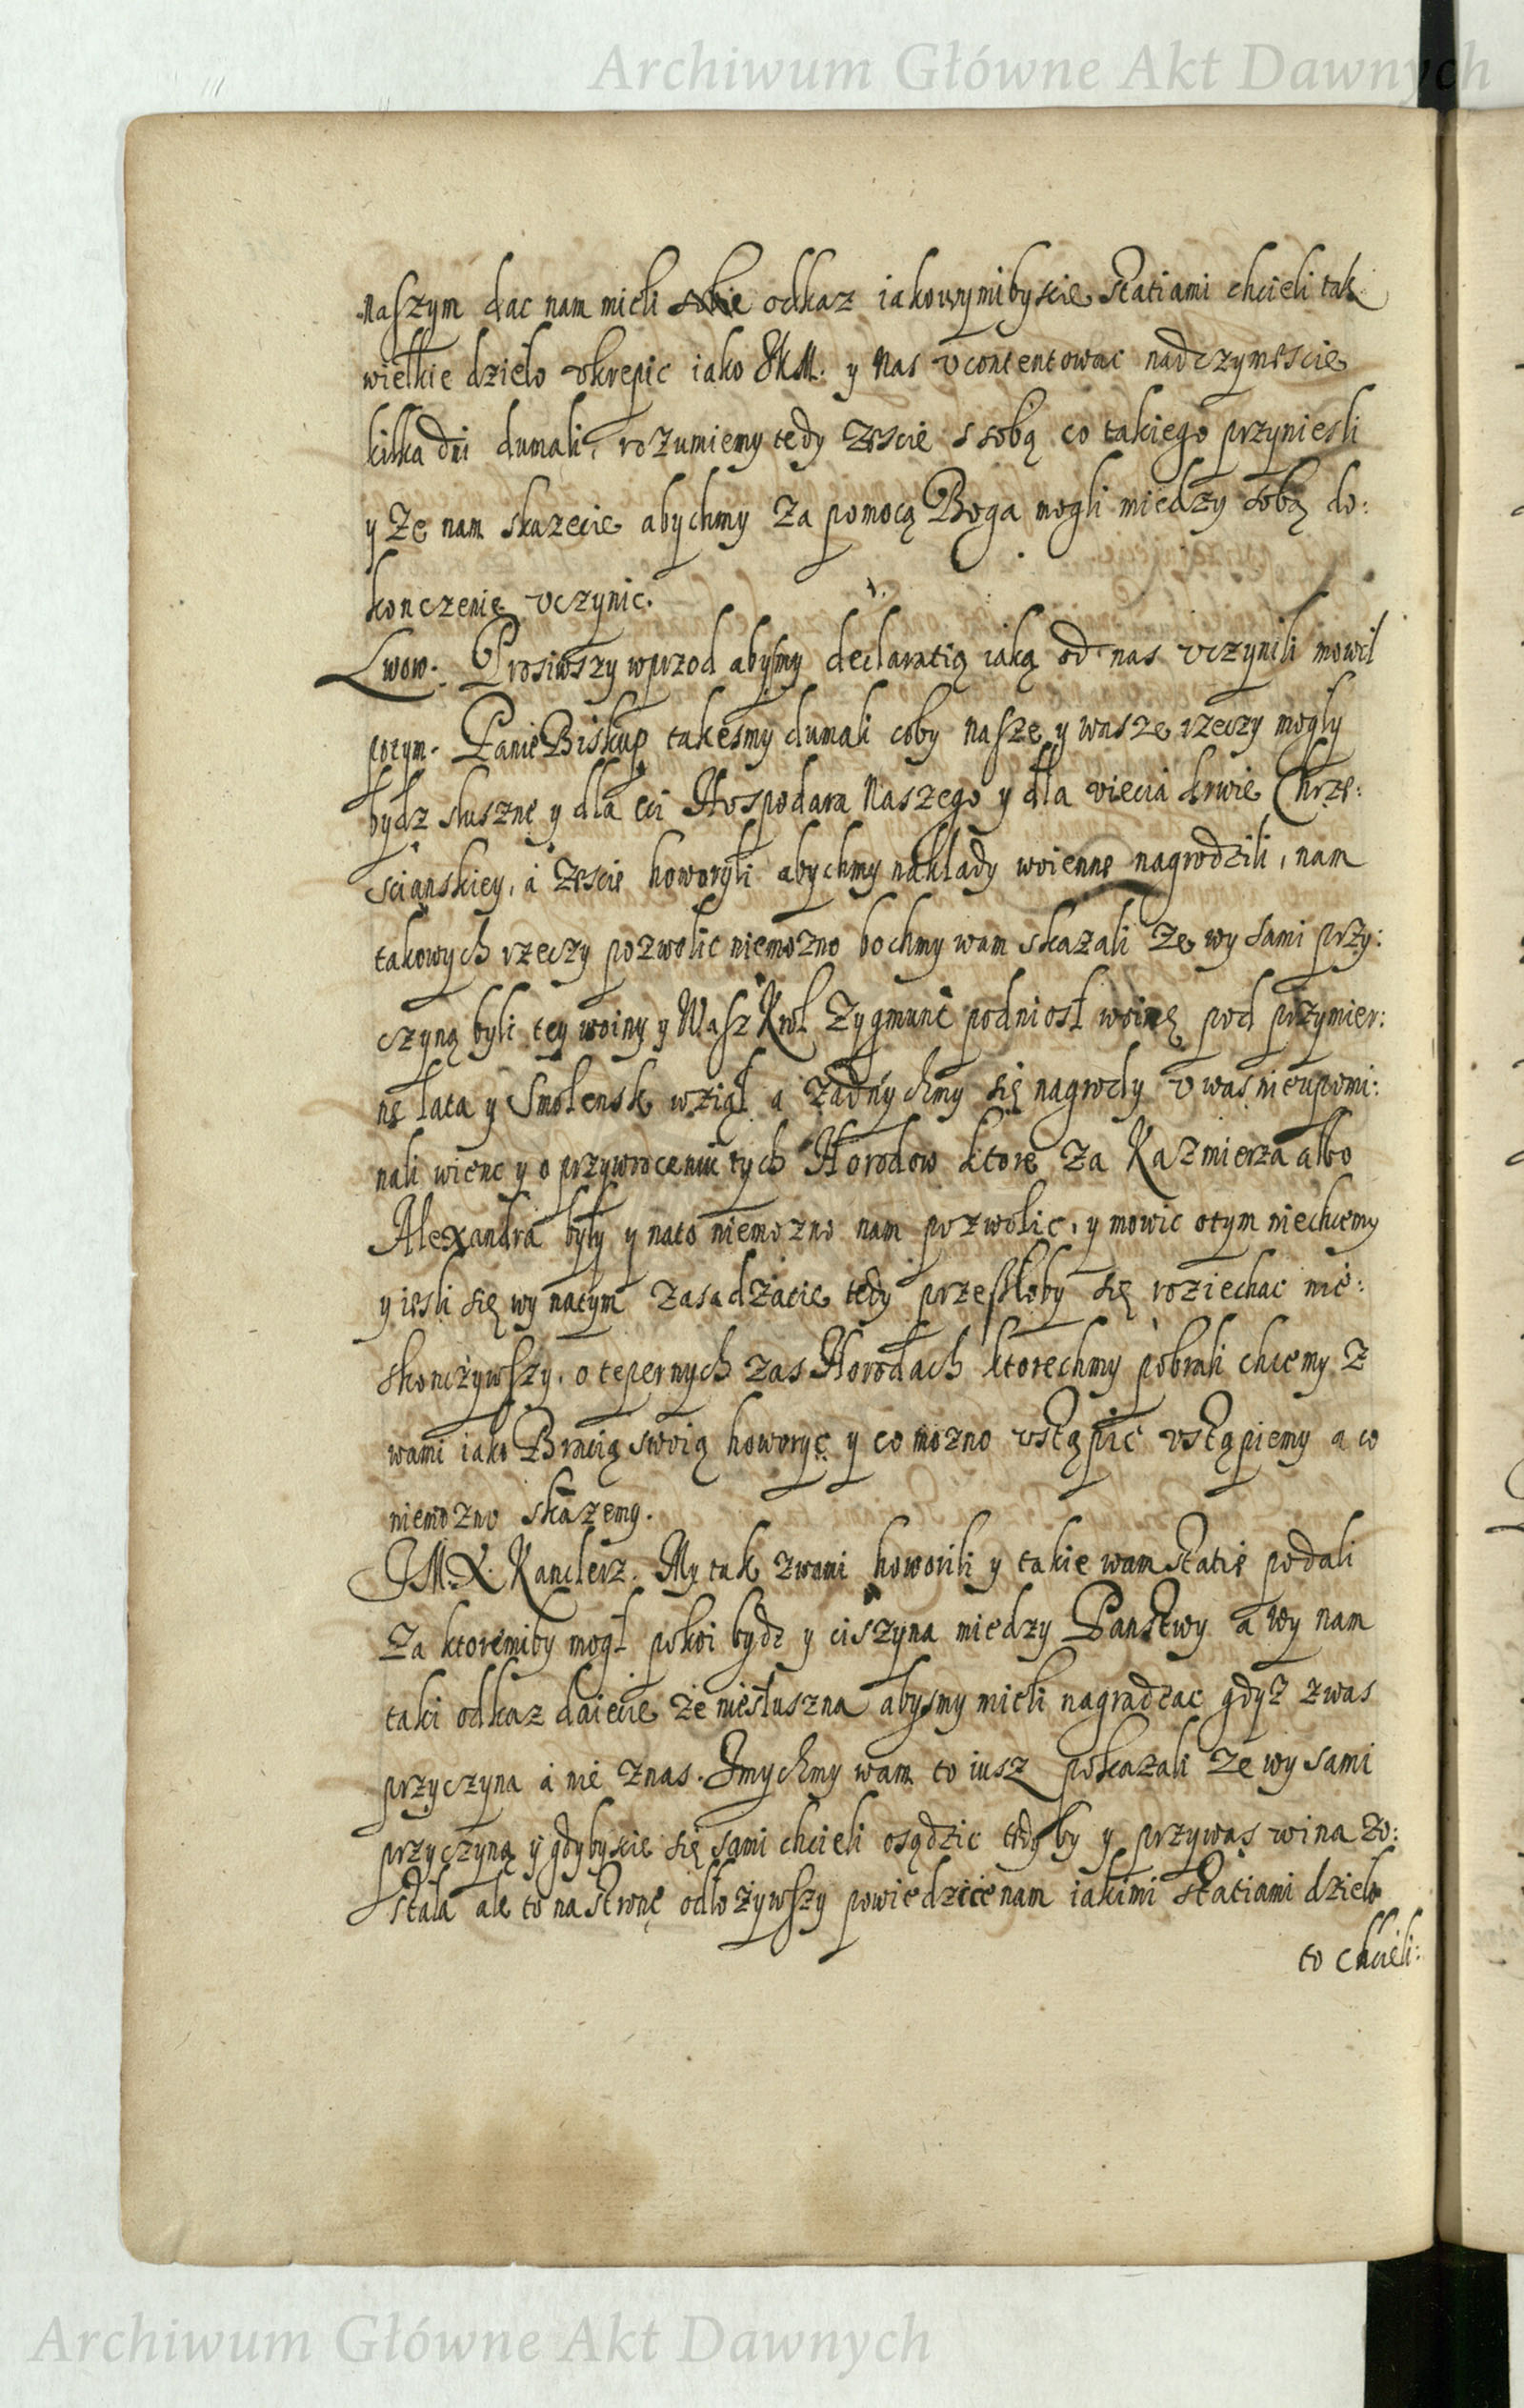 Archiwum Główne Akt Dawnych
naszym dac nam mieli sobie odkaz iakowymibyscie statiami chcieli tak
wielkie dzieło okrepic iako JKM. y nas vcontentowac nadczymescie
kilka dni dumali, rozumiemy tedy zescie s sobą co takiego przyniesli
y ze nam skazecie abychmy za pomocą Boga mogli miedzy sobą do:
konczenie vczynic.
Lwow. Prosiwszy wprzod abysmy declaratią iaką od nas vczynili mowił
potym. Panie Biskup takesmy dumali coby nasze y wasze rzeczy mogły
bydz słuszne y dla Hospodara naszego y dla krwie Chrze:
scianskiey, a zescie howoryli abychmy nakłady woienne nagrodzili, nam
takowych rzeczy pozwolic niemozno bochmy wam skazali ze wy sami przy:
czyną byli tey woiny y Wasz Krol Zygmunt podniosł woinę pod przymier:
ne lata y Smolensk wziął a zadnychmy się nagrody v was nieupomi:
nali wienc y o przywroceniu tych Horodow ktore za Kazmierza albo
Alexandra były y nato niemozno nam pozwolic, y mowic otym niechcemy
y iesli się wy natym zasadzacie tedy przeszłoby się roziechac nie:
skonczywszy, o tepernych zas Horodach ktorechmy pobrali chcemy z
wami iako Bracią swoią howoryc y co mozno vstąpic vstąpiemy a co
niemozno skazemy.
JM. X. Kanclerz. My tak zwami howorili y takie wam statie podali
za ktoremiby mogł pokoi bydz y ciszyna miedzy Panstwy a wy nam
taki odkaz daiecie ze niesłuszna abysmy mieli nagradzac gdyz zwas
przyczyna a nie znas. Imychmy wam to iusz pokazali ze wy sami
przyczyną y gdybyscie się sami chcieli osądzic tedyby y przywas wina zo:
stała ale to na stronę odłozywszy powiedzcie nam iakimi statiami dzieło
to chcieli:
Archiwum Główne Akt Dawnych